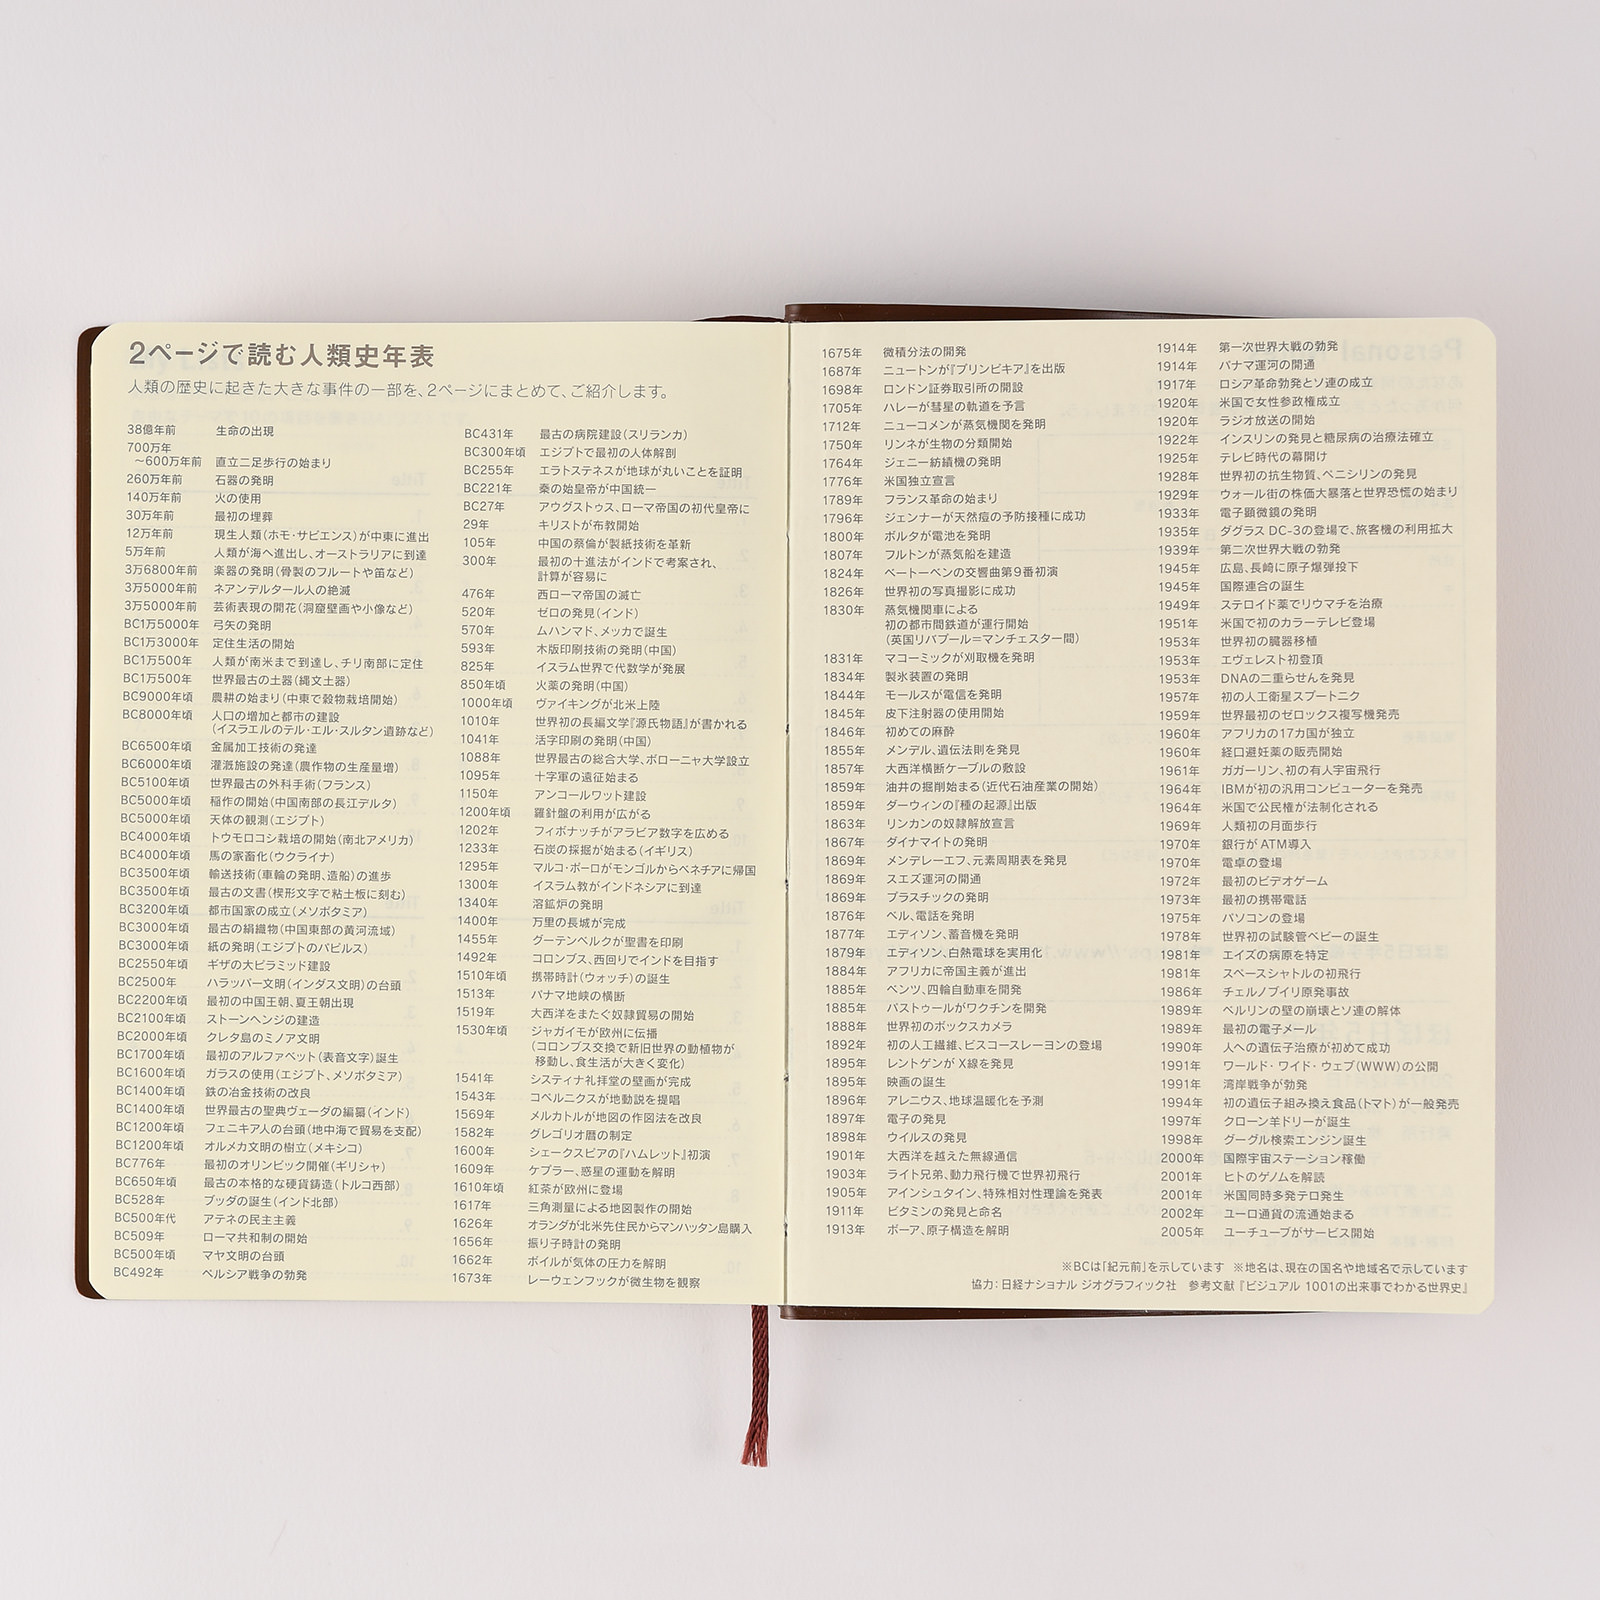 2ページで読む人類史年表
人類の歴史に起きた大きな事件の一部を、2ページにまとめて、ご紹介します。
38億年前 生命の出現
700万年
～600万年前 直立二足歩行の始まり
260万年前 石器の発明
140万年前 火の使用
30万年前 最初の埋葬
12万年前 現生人類(ホモ・サピエンス)が中東に進出
5万年前 人類が海へ進出し、オーストラリアに到達
3万6800年前 楽器の発明(骨製のフルートや笛など)
3万5000年前 ネアンデルタール人の絶滅
3万5000年前 芸術表現の開花(洞窟壁画や小像など)
BC1万5000年 弓矢の発明
BC1万3000年 定住生活の開始
BC1万500年 人類が南米まで到達し、チリ南部に定住
BC1万500年 世界最古の土器(縄文土器)
BC9000年頃 農耕の始まり(中東で穀物栽培開始)
BC8000年頃 人口の増加と都市の建設
(イスラエルのテル・エル・スルタン遺跡など)
BC6500年頃 金属加工技術の発達
BC6000年頃 灌漑施設の発達(農作物の生産量増)
BC5100年頃 世界最古の外科手術(フランス)
BC5000年頃 稲作の開始(中国南部の長江デルタ)
BC5000年頃 天体の観測(エジプト)
BC4000年頃 トウモロコシ栽培の開始(南北アメリカ)
BC4000年頃 馬の家畜化(ウクライナ)
BC3500年頃 輸送技術(車輪の発明、造船)の進歩
BC3500年頃 最古の文書(楔形文字で粘土板に刻む)
BC3200年頃 都市国家の成立(メソポタミア)
BC3000年頃 最古の絹織物(中国東部の黄河流域)
BC3000年頃 紙の発明(エジプトのパピルス)
BC2550年頃 ギザの大ピラミッド建設
BC2500年 ハラッパー文明(インダス文明)の台頭
BC2200年頃 最初の中国王朝、夏王朝出現
BC2100年頃 ストーンヘンジの建造
BC2000年頃 クレタ島のミノア文明
BC1700年頃 最初のアルファベット(表音文字)誕生
BC1600年頃 ガラスの使用(エジプト、メソポタミア)
BC1400年頃 鉄の冶金技術の改良
BC1400年頃 世界最古の聖典ヴェーダの編纂(インド)
BC1200年頃 フェニキア人の台頭(地中海で貿易を支配)
BC1200年頃 オルメカ文明の樹立(メキシコ)
BC776年 最初のオリンピック開催(ギリシャ)
BC650年頃 最古の本格的な硬貨鋳造(トルコ西部)
BC528年 ブッダの誕生(インド北部)
BC500年代 アテネの民主主義
BC509年 ローマ共和制の開始
BC500年頃 マヤ文明の台頭
BC492年 ペルシア戦争の勃発
BC431年 最古の病院建設(スリランカ)
BC300年頃 エジプトで最初の人体解剖
BC255年 エラトステネスが地球が丸いことを証明
BC221年 秦の始皇帝が中国統一
BC27年 アウグストゥス、ローマ帝国の初代皇帝に
29年 キリストが布教開始
105年 中国の蔡倫が製紙技術を革新
300年 最初の十進法がインドで考案され、
計算が容易に
476年 西ローマ帝国の滅亡
520年 ゼロの発見(インド)
570年 ムハンマド、メッカで誕生
593年 木版印刷技術の発明(中国)
825年 イスラム世界で代数学が発展
850年頃 火薬の発明(中国)
1000年頃 ヴァイキングが北米上陸
1010年 世界初の長編文学『源氏物語』が書かれる
1041年 活字印刷の発明(中国)
1088年 世界最古の総合大学、ボローニャ大学設立
1095年 十字軍の遠征始まる
1150年 アンコールワット建設
1200年頃 羅針盤の利用が広がる
1202年 フィボナッチがアラビア数字を広める
1233年 石炭の採掘が始まる(イギリス)
1295年 マルコ・ポーロがモンゴルからベネチアに帰国
1300年 イスラム教がインドネシアに到達
1340年 溶鉱炉の発明
1400年 万里の長城が完成
1455年 グーテンベルクが聖書を印刷
1492年 コロンブス、西回りでインドを目指す
1510年頃 携帯時計(ウォッチ)の誕生
1513年 パナマ地峡の横断
1519年 大西洋をまたぐ奴隷貿易の開始
1530年頃 ジャガイモが欧州に伝播
(コロンブス交換で新旧世界の動植物が
移動し、食生活が大きく変化)
1541年 システィナ礼拝堂の壁画が完成
1543年 コペルニクスが地動説を提唱
1569年 メルカトルが地図の作図法を改良
1582年 グレゴリオ暦の制定
1600年 シェークスピアの『ハムレット』初演
1609年 ケプラー、惑星の運動を解明
1610年頃 紅茶が欧州に登場
1617年 三角測量による地図製作の開始
1626年 オランダが北米先住民からマンハッタン島購入
1656年 振り子時計の発明
1662年 ボイルが気体の圧力を解明
1673年 レーウェンフックが微生物を観察
1675年 微積分法の開発
1687年 ニュートンが『プリンピキア』を出版
1698年 ロンドン証券取引所の開設
1705年 ハレーが彗星の軌道を予言
1712年 ニューコメンが蒸気機関を発明
1750年 リンネが生物の分類開始
1764年 ジェニー紡績機の発明
1776年 米国独立宣言
1789年 フランス革命の始まり
1796年 ジェンナーが天然痘の予防接種に成功
1800年 ボルタが電池を発明
1807年 フルトンが蒸気船を建造
1824年 ベートーベンの交響曲第9番初演
1826年 世界初の写真撮影に成功
1830年 蒸気機関車による
初の都市間鉄道が運行開始
(英国リバプール＝マンチェスター間)
1831年 マコーミックが刈取機を発明
1834年 製氷装置の発明
1844年 モールスが電信を発明
1845年 皮下注射器の使用開始
1846年 初めての麻酔
1855年 メンデル、遺伝法則を発見
1857年 大西洋横断ケーブルの敷設
1859年 油井の掘削始まる(近代石油産業の開始)
1859年 ダーウィンの『種の起源』出版
1863年 リンカンの奴隷解放宣言
1867年 ダイナマイトの発明
1869年 メンデレーエフ、元素周期表を発見
1869年 スエズ運河の開通
1869年 プラスチックの発明
1876年 ベル、電話を発明
1877年 エディソン、蓄音機を発明
1879年 エディソン、白熱電球を実用化
1884年 アフリカに帝国主義が進出
1885年 ベンツ、四輪自動車を開発
1885年 パストゥールがワクチンを開発
1888年 世界初のボックスカメラ
1892年 初の人工繊維、ビスコースレーヨンの登場
1895年 レントゲンがX線を発見
1895年 映画の誕生
1896年 アレニウス、地球温暖化を予測
1897年 電子の発見
1898年 ウイルスの発見
1901年 大西洋を越えた無線通信
1903年 ライト兄弟、動力飛行機で世界初飛行
1905年 アインシュタイン、特殊相対性理論を発表
1911年 ビタミンの発見と命名
1913年 ボーア、原子構造を解明
1914年 第一次世界大戦の勃発
1914年 パナマ運河の開通
1917年 ロシア革命勃発とソ連の成立
1920年 米国で女性参政権成立
1920年 ラジオ放送の開始
1922年 インスリンの発見と糖尿病の治療法確立
1925年 テレビ時代の幕開け
1928年 世界初の抗生物質、ペニシリンの発見
1929年 ウォール街の株価大暴落と世界恐慌の始まり
1933年 電子顕微鏡の発明
1935年 ダグラス DC-3の登場で、旅客機の利用拡大
1939年 第二次世界大戦の勃発
1945年 広島、長崎に原子爆弾投下
1945年 国際連合の誕生
1949年 ステロイド薬でリウマチを治療
1951年 米国で初のカラーテレビ登場
1953年 世界初の臓器移植
1953年 エヴェレスト初登頂
1953年 DNAの二重らせんを発見
1957年 初の人工衛星スプートニク
1959年 世界最初のゼロックス複写機発売
1960年 アフリカの17カ国が独立
1960年 経口避妊薬の販売開始
1961年 ガガーリン、初の有人宇宙飛行
1964年 IBMが初の汎用コンピューターを発売
1964年 米国で公民権が法制化される
1969年 人類初の月面歩行
1970年 銀行が ATM導入
1970年 電卓の登場
1972年 最初のビデオゲーム
1973年 最初の携帯電話
1975年 パソコンの登場
1978年 世界初の試験管ベビーの誕生
1981年 エイズの病原を特定
1981年 スペースシャトルの初飛行
1986年 チェルノブイリ原発事故
1989年 ベルリンの壁の崩壊とソ連の解体
1989年 最初の電子メール
1990年 人への遺伝子治療が初めて成功
1991年 ワールド・ワイド・ウェブ(WWW)の公開
1991年 湾岸戦争が勃発
1994年 初の遺伝子組み換え食品(トマト)が一般発売
1997年 クローン羊ドリーが誕生
1998年 グーグル検索エンジン誕生
2000年 国際宇宙ステーション稼働
2001年 ヒトのゲノムを解読
2001年 米国同時多発テロ発生
2002年 ユーロ通貨の流通始まる
2005年 ユーチューブがサービス開始
※BCは「紀元前」を示しています ※地名は、現在の国名や地域名で示しています
協力：日経ナショナル ジオグラフィック社 参考文献『ビジュアル 1001の出来事でわかる世界史』